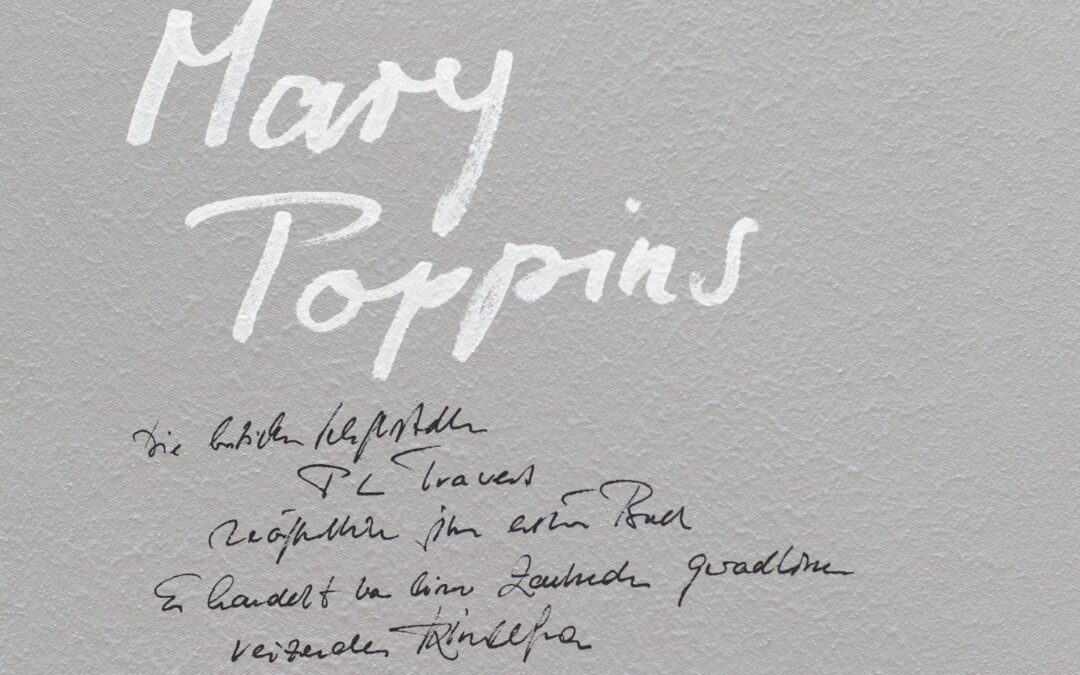 Mary
Poppins
Die britische Schriftstellerin
P L Travers
veröffentlicht ihr erstes Buch
Es handelt von einer zauberhaften
reizenden Kinderfrau